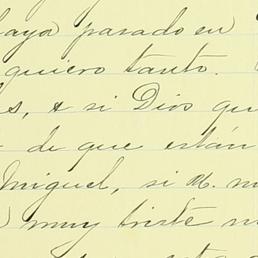 haya pasado en
quiero tanto.
s, & si Dios qu
de que están
Miguel, si M. m
muy triste